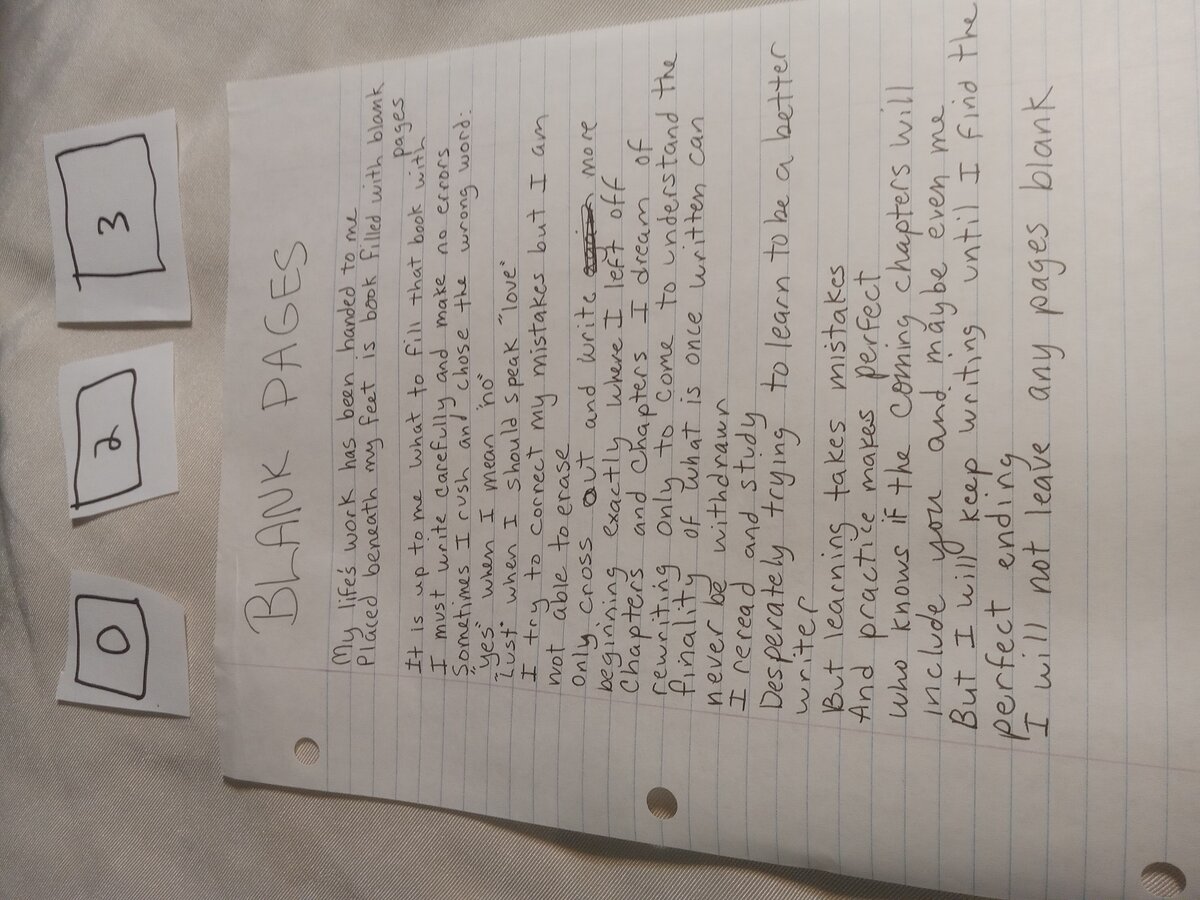 0
2
3
BLANK PAGES
My life's work has been handed to me
Placed beneath my feet is book filled with blank
pages
It is up to me what to fill that book with
I must write carefully and make no errors
Sometimes I rush and chose the wrong word.
"yes" when I mean "no"
"Lust" when I should speak "love"
I try to correct my mistakes but I am
not able to erase
only cross out and write more
begining exactly where I left off
Chapters and chapters I dream of
rewriting only to come to understand the
finality of what is once written can
never be withdrawn
I reread and study
Desperately trying to learn to be a better
writer
But learning takes mistakes
And practice makes perfect
who knows if the coming chapters will
include you and maybe even me
But I will keep writing until I find the
perfect ending
I will not leave any pages blank